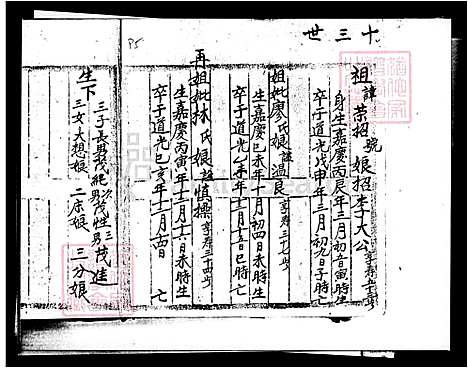 十三世
祖諱荣招號娘招李大公享寿五十三岁
身生嘉慶丙辰年三月初一日寅時生
卒于道光戊申年三月初九日子時亡
祖妣廖氏娘諡温良享寿三十七岁
生嘉慶己未年十月初四日未時生
卒于道光乙未年十二月十五日巳時亡
再祖妣林氏娘諡慎操享寿三十四岁
生嘉慶丙寅年十二月十六日未時生
卒于道光己亥年十二月
生下
三子長男茂繩 次男茂性 三男茂進
三女大想娘 二床娘 三分娘
P5